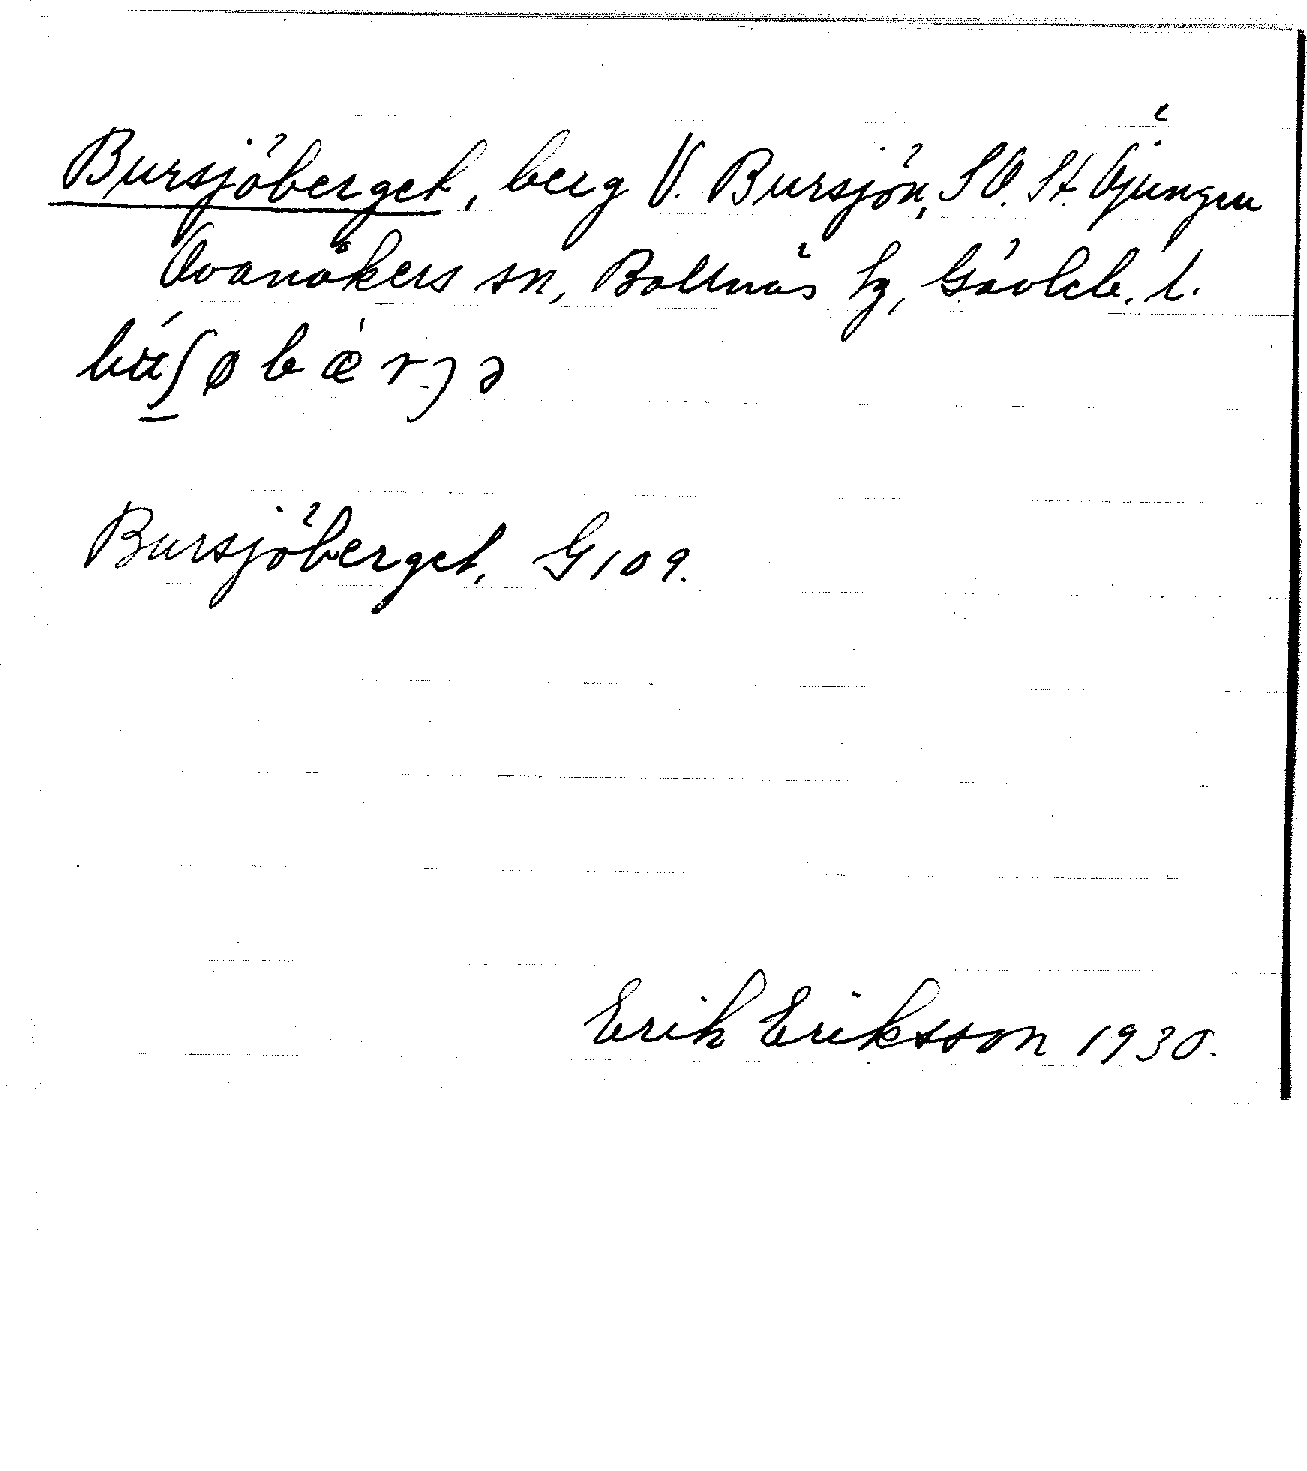 Bursjöberget, berg V. Bursjön, SV. St. Öjungen
Ovanåkers sn, Bollnäs tg, Gävleb. l.
Bursjöberget, G109.
Erik Eriksson 1930.